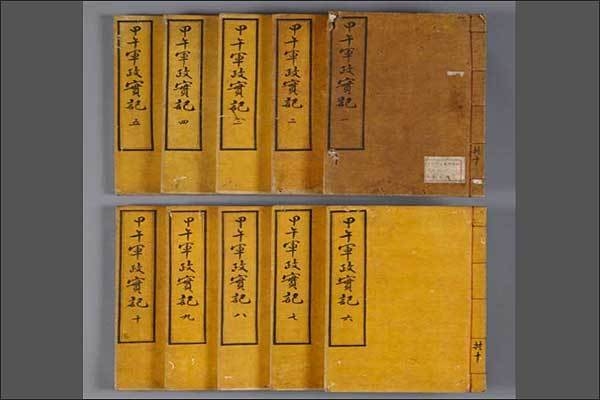 共十
甲午軍政實記 一
甲午軍政實記 二
甲午軍政實記 三
甲午軍政實記 四
甲午軍政實記 五
共十
甲午軍政實記 六
甲午軍政實記 七
甲午軍政實記 八
甲午軍政實記 九
甲午軍政實記 十